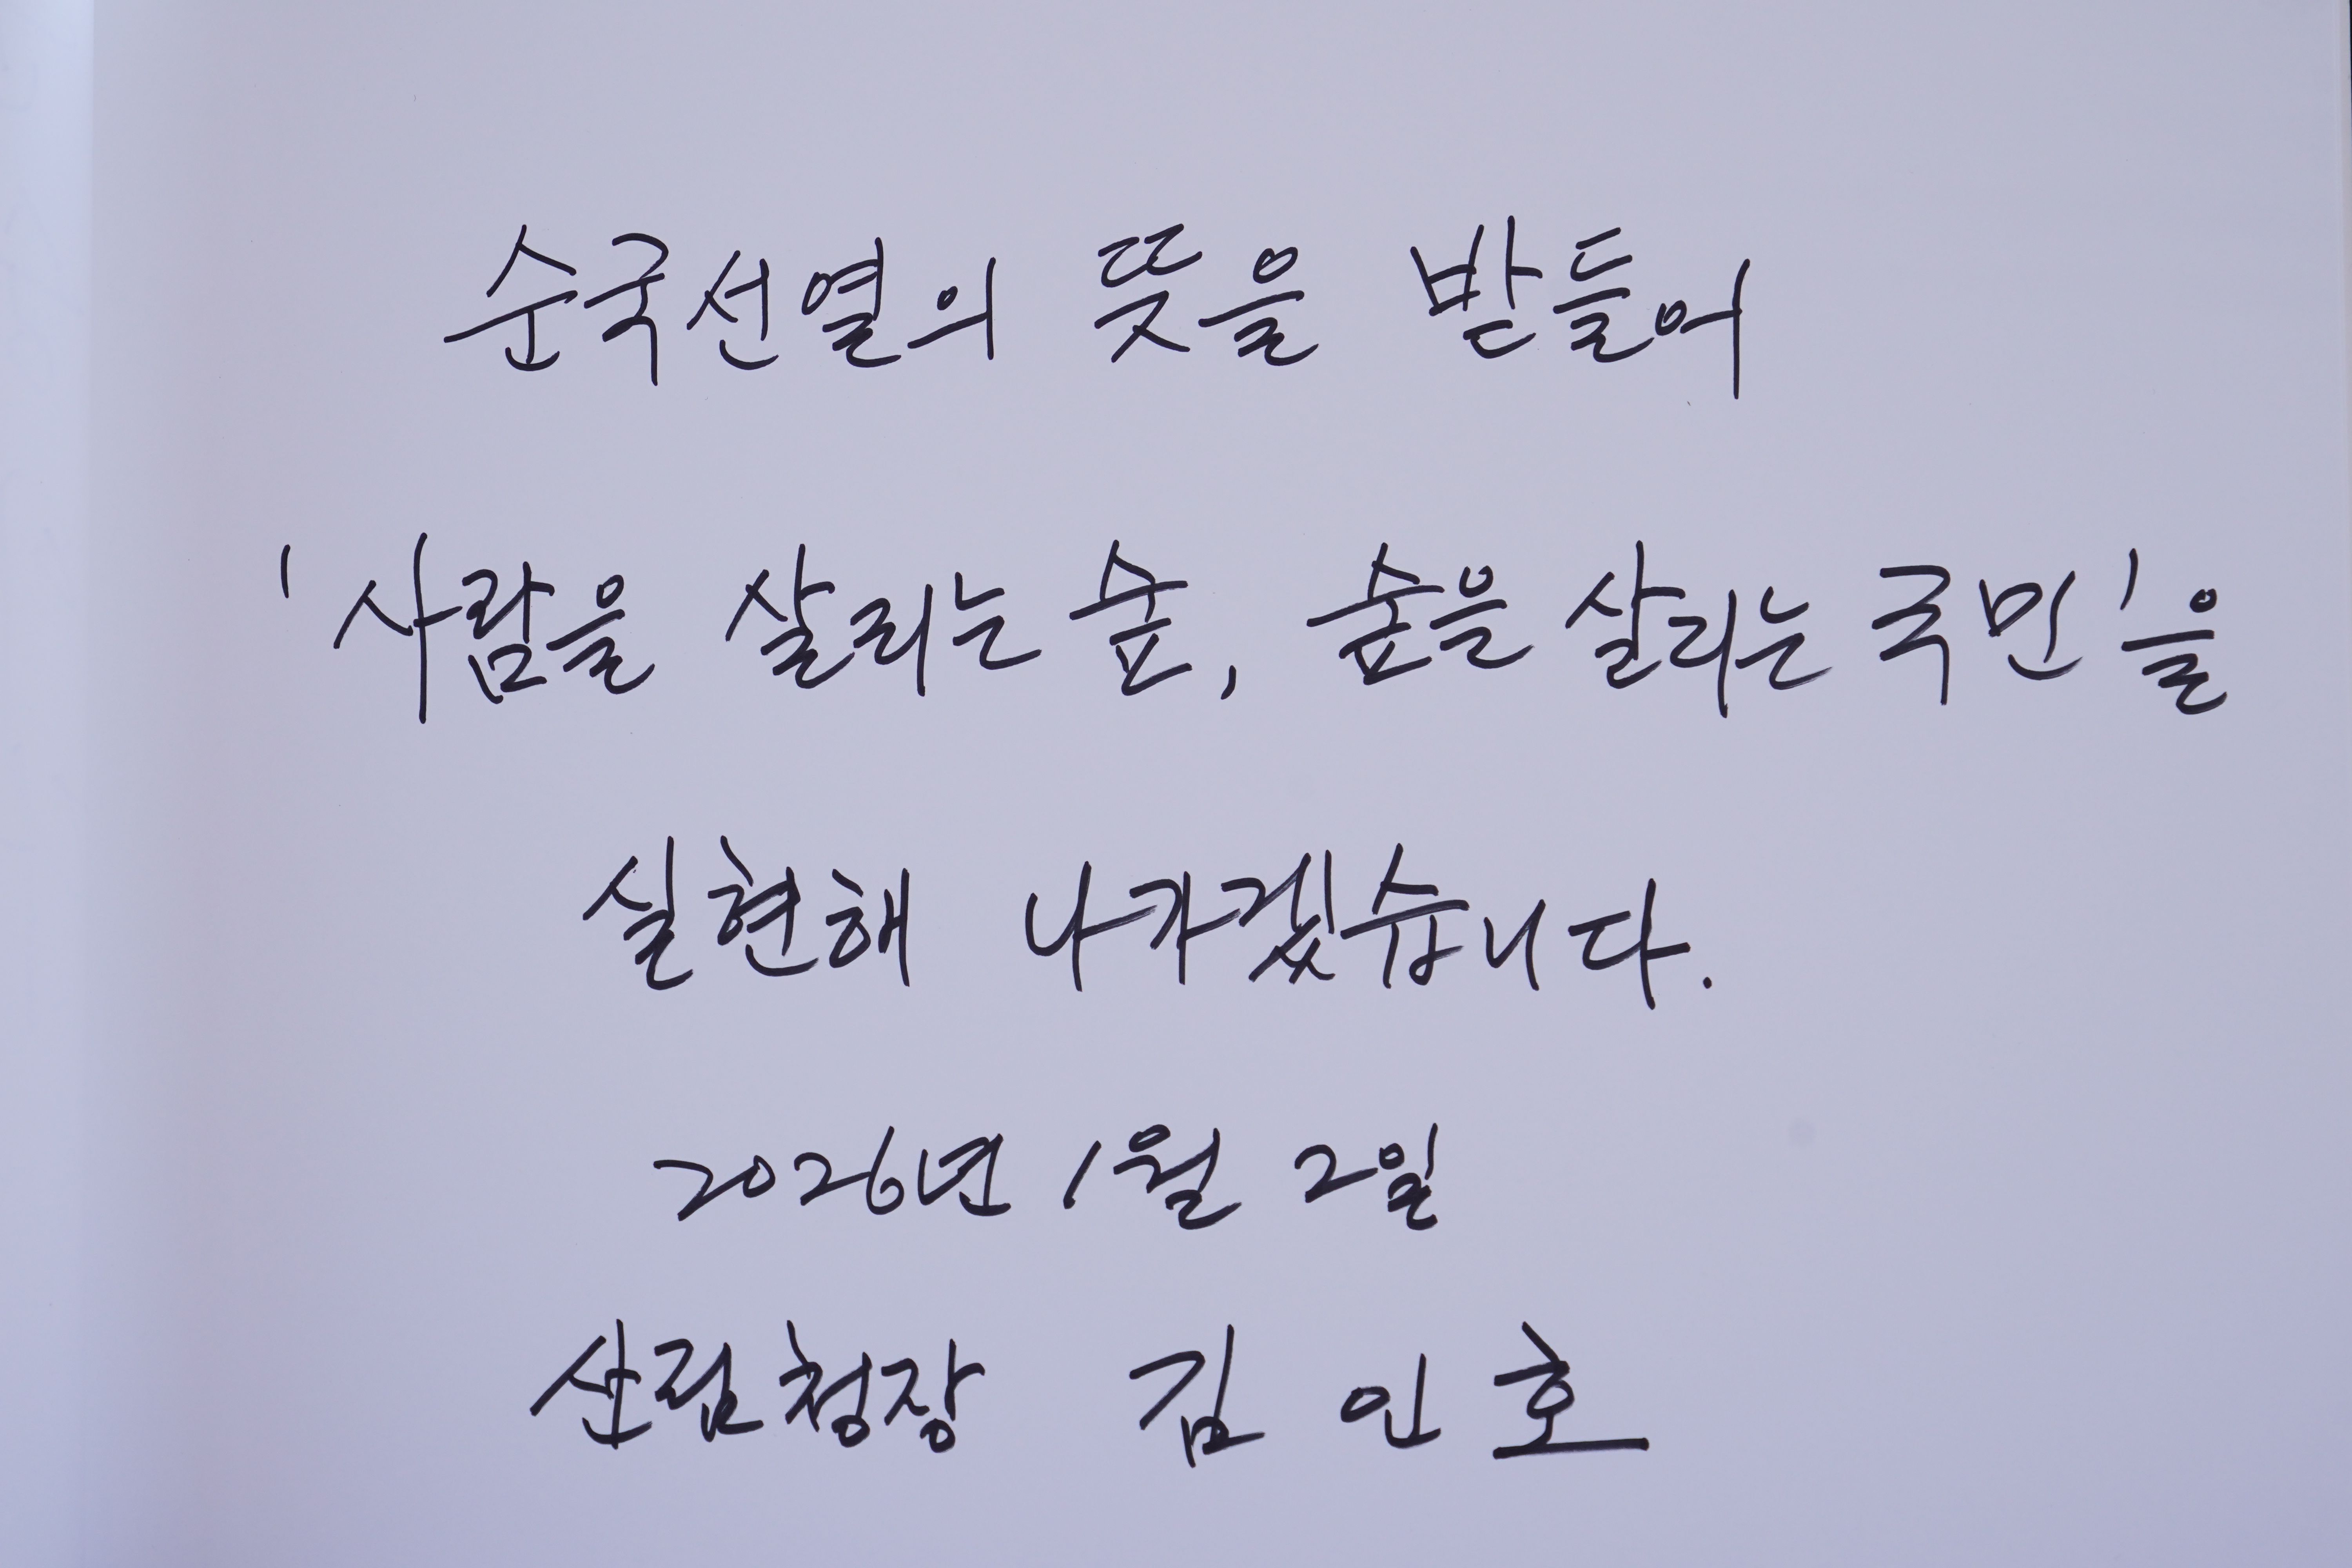 순국선열의 뜻을 받들어
'사람을 살리는 숲, 숲을 살리는 국민'을
실현해 나가겠습니다.
2026년 1월 2일
산림청장 김인호